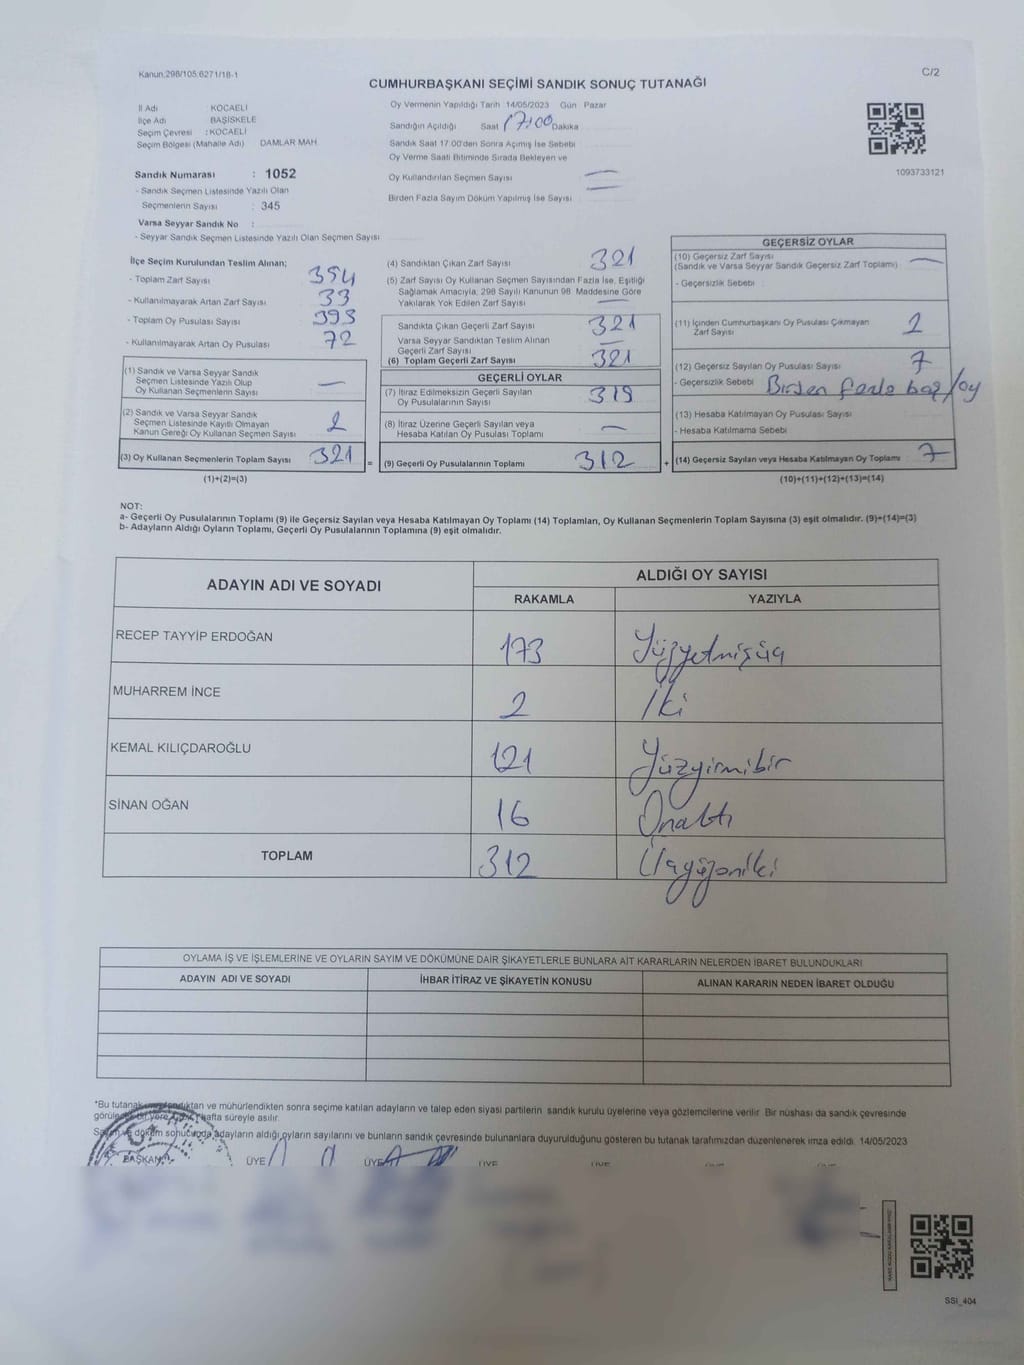 Kanun:298/105.6271/18-1
C/2
CUMHURBAŞKANI SEÇİMİ SANDIK SONUÇ TUTANAĞI
İl Adı KOCAELİ
İlçe Adı BAŞİSKELE
Seçim Çevresi : KOCAELİ
Seçim Bölgesi (Mahalle Adı) DAMLAR MAH.
Oy Vermenin Yapıldığı Tarih 14/05/2023 Gün Pazar
Sandığın Açıldığı Saat 17:00 Dakika
Sandık Saat 17.00'den Sonra Açımış İse Sebebi
Oy Verme Saati Bitiminde Sırada Bekleyen ve
Oy Kullandırılan Seçmen Sayısı
Birden Fazla Sayım Döküm Yapılmış İse Sayısı
1093733121
Sandık Numarası : 1052
- Sandık Seçmen Listesinde Yazılı Olan
Seçmenlerin Sayısı : 345
Varsa Seyyar Sandık No :
- Seyyar Sandık Seçmen Listesinde Yazılı Olan Seçmen Sayısı
İlçe Seçim Kurulundan Teslim Alınan;
- Toplam Zarf Sayısı 354
- Kullanılmayarak Artan Zarf Sayısı 33
- Toplam Oy Pusulası Sayısı 393
- Kullanılmayarak Artan Oy Pusulası 72
(1) Sandık ve Varsa Seyyar Sandık
Seçmen Listesinde Yazılı Olup
Oy Kullanan Seçmenlerin Sayısı —
(2) Sandık ve Varsa Seyyar Sandık
Seçmen Listesinde Kayıtlı Olmayan
Kanun Gereği Oy Kullanan Seçmen Sayısı 2
(3) Oy Kullanan Seçmenlerin Toplam Sayısı 321
(1)+(2)=(3)
(4) Sandıktan Çıkan Zarf Sayısı 321
(5) Zarf Sayısı Oy Kullanan Seçmen Sayısından Fazla İse, Eşitliği
Sağlamak Amacıyla, 298 Sayılı Kanunun 98. Maddesine Göre
Yakılarak Yok Edilen Zarf Sayısı —
Sandıkta Çıkan Geçerli Zarf Sayısı 321
Varsa Seyyar Sandıktan Teslim Alınan
Geçerli Zarf Sayısı —
(6) Toplam Geçerli Zarf Sayısı 321
GEÇERLİ OYLAR
(7) İtiraz Edilmeksizin Geçerli Sayılan
Oy Pusulalarının Sayısı
(8) İtiraz Üzerine Geçerli Sayılan veya
Hesaba Katılan Oy Pusulası Toplamı —
= (9) Geçerli Oy Pusulalarının Toplamı 312
GEÇERSİZ OYLAR
(10) Geçersiz Zarf Sayısı —
(Sandık ve Varsa Seyyar Sandık Geçersiz Zarf Toplamı)
- Geçersizlik Sebebi :
(11) İçinden Cumhurbaşkanı Oy Pusulası Çıkmayan
Zarf Sayısı 2
(12) Geçersiz Sayılan Oy Pusulası Sayısı 7
- Geçersizlik Sebebi Birden fazla
(13) Hesaba Katılmayan Oy Pusulası Sayısı
- Hesaba Katılmama Sebebi
+ (14) Geçersiz Sayılan veya Hesaba Katılmayan Oy Toplamı 7
(10)+(11)+(12)+(13)=(14)
NOT:
a- Geçerli Oy Pusulalarının Toplamı (9) ile Geçersiz Sayılan veya Hesaba Katılmayan Oy Toplamı (14) Toplamları, Oy Kullanan Seçmenlerin Toplam Sayısına (3) eşit olmalıdır. (9)+(14)=(3)
b- Adayların Aldığı Oyların Toplamı, Geçerli Oy Pusulalarının Toplamına (9) eşit olmalıdır.
ADAYIN ADI VE SOYADI
ALDIĞI OY SAYISI
RAKAMLA YAZIYLA
RECEP TAYYİP ERDOĞAN 173 Yüzyetmişüç
MUHARREM İNCE 2 İki
KEMAL KILIÇDAROĞLU 121 Yüzyirmibir
SİNAN OĞAN 16 Onaltı
TOPLAM 312 Üçyüzoniki
OYLAMA İŞ VE İŞLEMLERİNE VE OYLARIN SAYIM VE DÖKÜMÜNE DAİR ŞİKAYETLERLE BUNLARA AİT KARARLARIN NELERDEN İBARET BULUNDUKLARI
ADAYIN ADI VE SOYADI İHBAR İTİRAZ VE ŞİKAYETİN KONUSU ALINAN KARARIN NEDEN İBARET OLDUĞU
*Bu tutanak ve mühürlendikten sonra seçime katılan adayların ve talep eden siyasi partilerin sandık kurulu üyelerine veya gözlemcilerine verilir. Bir nüshası da sandık çevresinde
hafta süreyle asılır.
Sayım ve döküm sonucunda adayların aldığı oyların sayılarını ve bunların sandık çevresinde bulunanlara duyurulduğunu gösteren bu tutanak tarafımızdan düzenlenerek imza edildi. 14/05/2023
BAŞKAN ÜYE ÜYE ÜYE ÜYE
SSİ_404